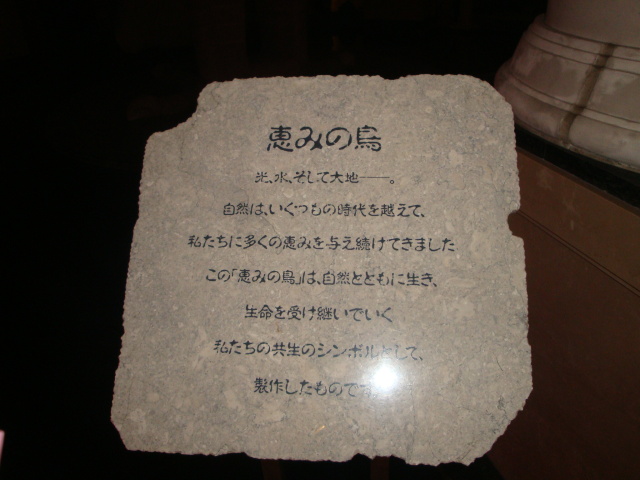 恵みの鳥
光、水、そして大地――。
自然は、いくつもの時代を越えて、
私たちに多くの恵みを与え続けてきました
この「恵みの鳥」は、自然とともに生き、
生命を受け継いでいく
私たちの共生のシンボルとして、
製作したものです